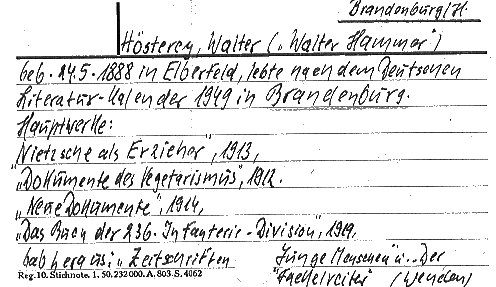 Brandenburg/H.
Hösterey, Walter ("Walter Hammer")
geb. 24.5.1888 in Elberfeld, lebte nach dem Deutschen
Literatur-Kalender 1949 in Brandenburg.
Hauptwerke:
"Nietzsche als Erzieher", 1913,
"Dokumente des Vegetarismus", 1912.
"Neue Dokumente", 1914,
"Das Buch der 236. Infanterie-Division", 1919.
gab heraus: Zeitschriften "Junge Menschen" u. "Der
Reg. 10. Stichnote. 1. 50. 232000. A. 803 S. 4062 "Fackelreiter" (Wenden)